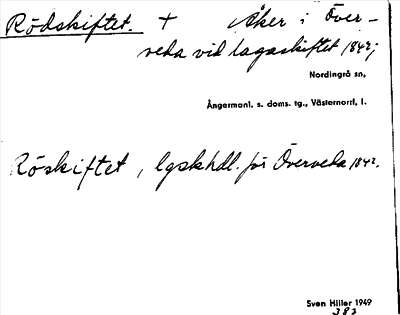 Rödskiftet. + Åker i Över-
veda vid lagaskiftet 1842;
Nordingrå sn,
Ångermanl. s. doms. tg., Västernorrl, l.
Röskiftet, lgskhdl. för Överveda 1842.
Sven Hiller 1949
383